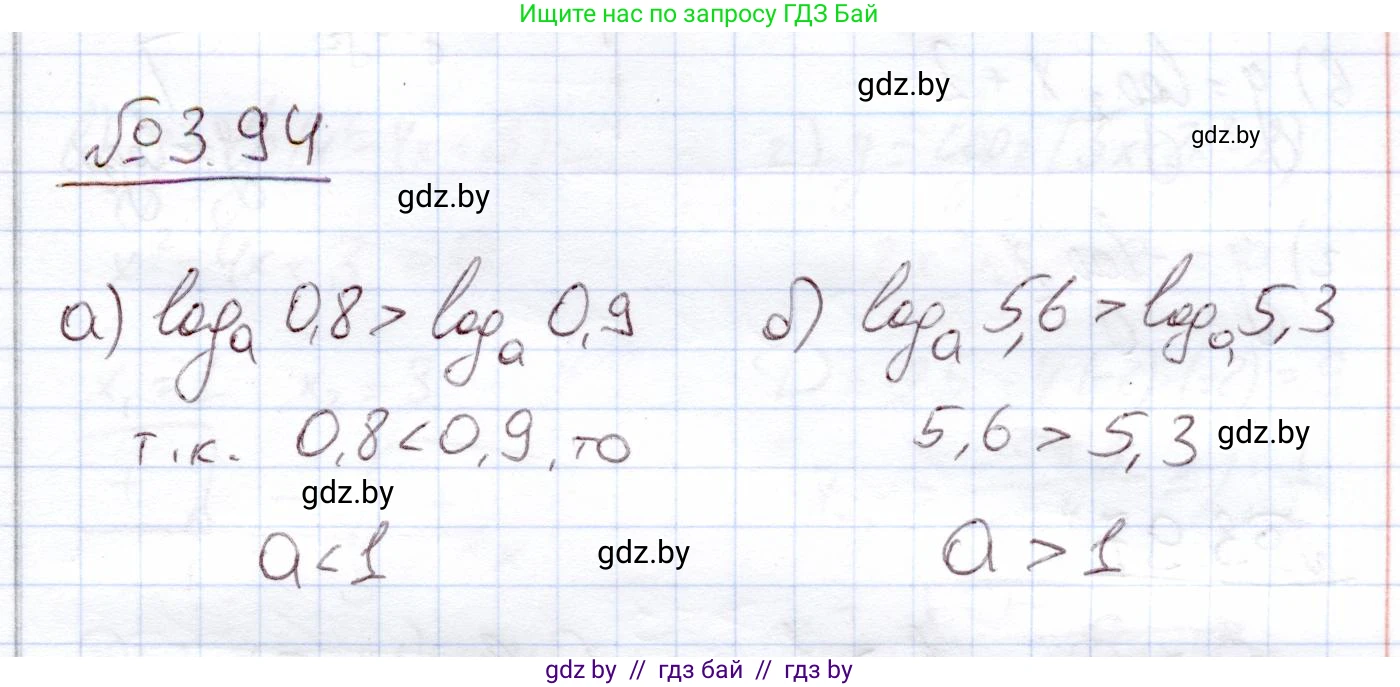 Ищите нас по запросу ГДЗ Бай
gdz.by
gdz.by
№3.94
gdz.by
а) logₐ 0,8 > logₐ 0,9
б) logₐ 5,6 > logₐ 5,3
т.к. 0,8 < 0,9, то
5,6 > 5,3
gdz.by
gdz.by
a < 1
gdz.by
a > 1
gdz by // гдз бай // гдз by